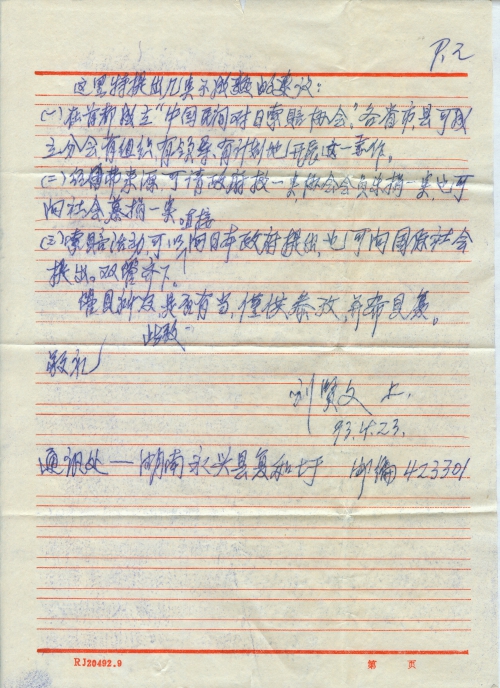 P.2
这里特提出几点不成熟的建议：
(一)在首都成立“中国民间对日索赔协会”各省市、县可成
立分会有组织有领导,有计划地开展这一工作。
(二)经费来源,可请政府拨一点,协会会员乐捐一点,也可
向社会募捐一点。
直接
(三)索赔活动可以向日本政府提出,也可向国际社会
提出。双管齐下。
管见所及是否有当,仅供参考,并希见复。
此致
敬礼
刘贤文 上.
93.4.23.
通讯处——湖南永兴县复和 邮编423301
RJ20492.9
第 页